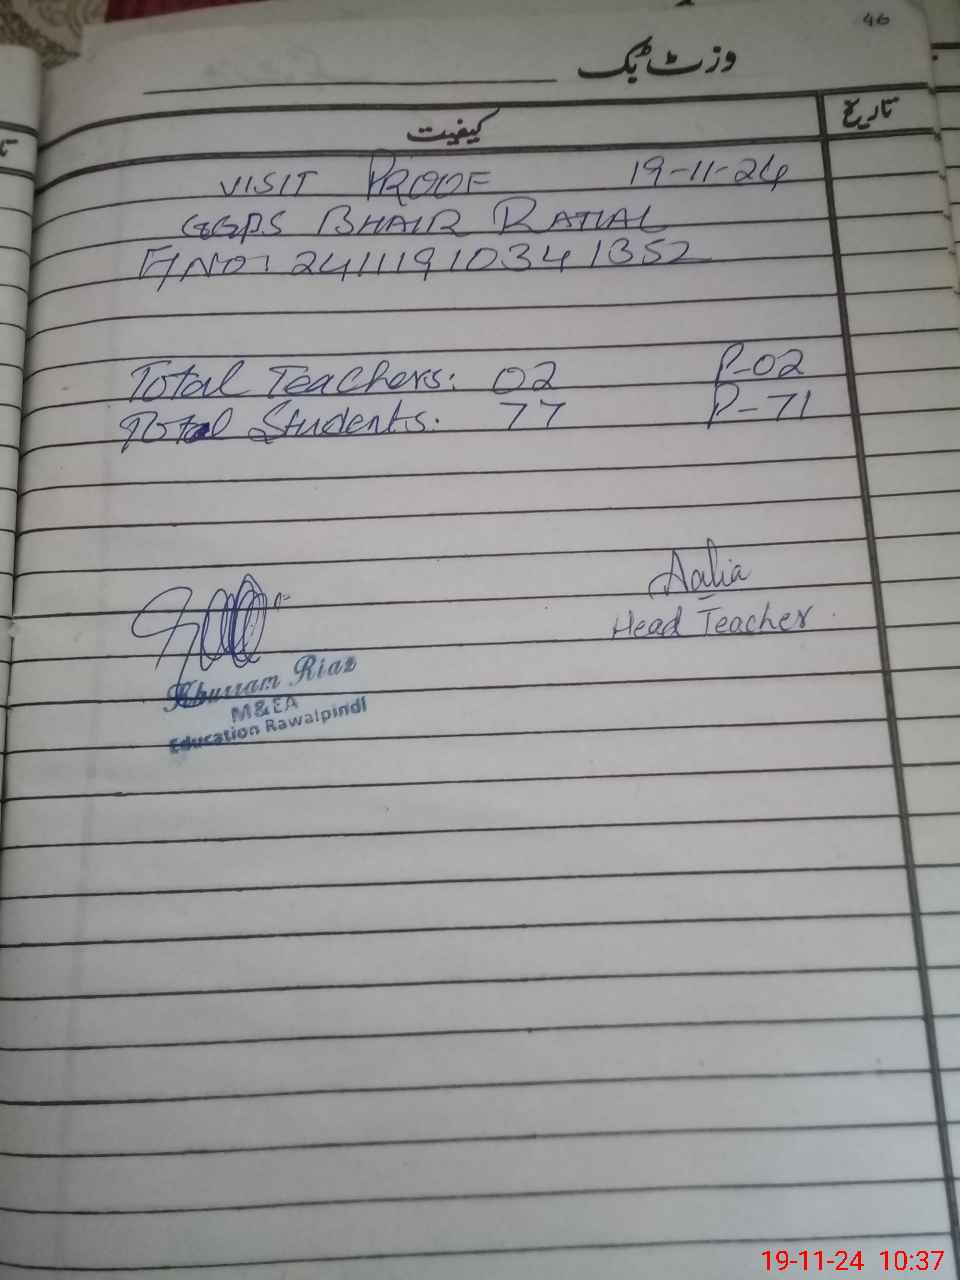 46
وزٹ بک
کیفیت تاریخ
VISIT PROOF 19-11-24
GGPS BHAIR RATIAL
F/NO: 24111910341352
Total Teachers: 02 P-02
Total Students: 77 P-71
Aalia
Head Teacher
Khurram Riaz
M&EA
Education Rawalpindi
19-11-24 10:37